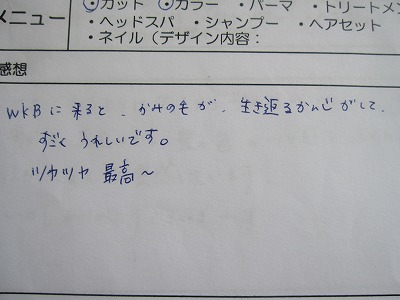 メニュー ・カット ・カラー ・パーマ ・トリートメン
・ヘッドスパ ・シャンプー ・ヘアセット
・ネイル(デザイン内容:
感想
WKBに来ると、かみの毛が、生き返るかんじがして、
すごくうれしいです。
ツヤツヤ 最高~